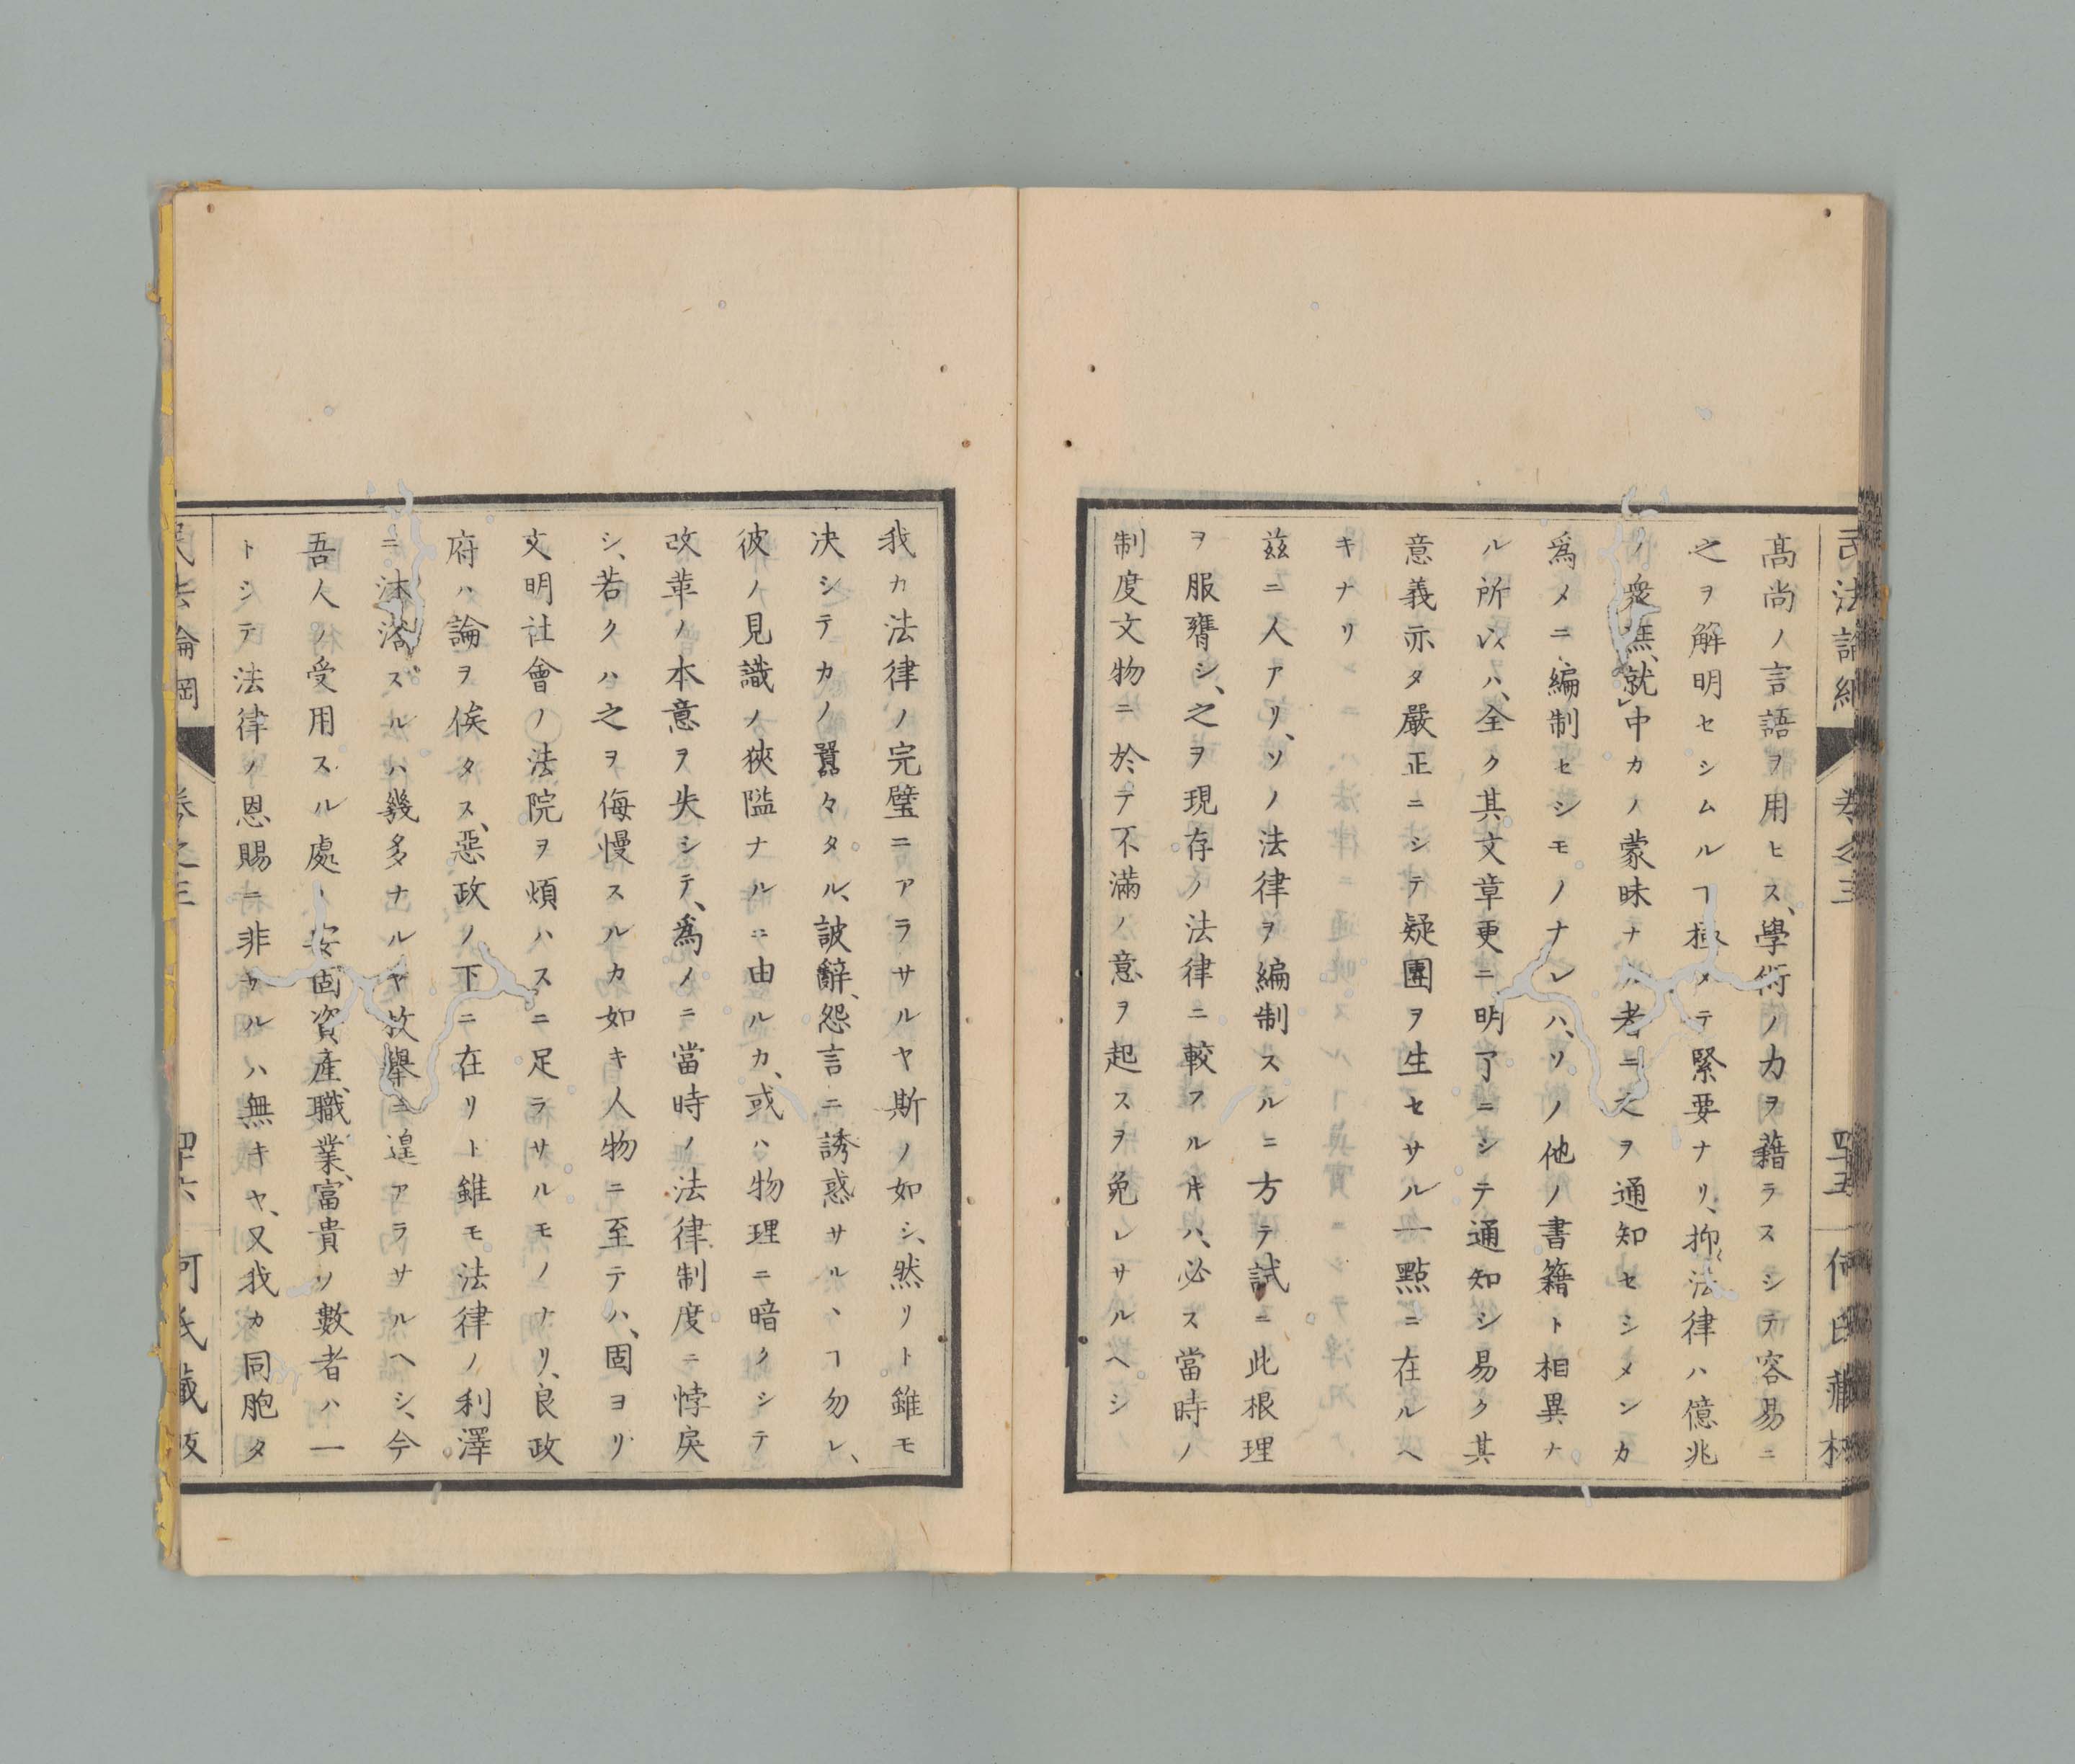 民法論綱 卷之三 四十五 何氏藏板
高尚ノ言語ヲ用ヒス、學術ノ力ヲ藉ラスシテ容易ニ
之ヲ解明セシムルヿ極メテ緊要ナリ、抑法律ハ億兆
ノ衆庶、就中カノ蒙昧ナル者ニ之ヲ通知セシメンカ
爲メニ編制セシモノナレハ、ソノ他ノ書籍ト相異ナ
ル所以ハ、全ク其文章更ニ明了ニシテ通知シ易ク其
意義亦タ嚴正ニシテ疑團ヲ生セサル一點ニ在ルヘ
キナリ
茲ニ人アリ、ソノ法律ヲ編制スルニ方テ試ニ此根理
ヲ服膺シ、之ヲ現存ノ法律ニ較フル𪜈ハ、必ス當時ノ
制度文物ニ於テ不滿ノ意ヲ起スヲ免レサルヘシ
我カ法律ノ完璧ニアラサルヤ斯ノ如シ、然リト雖モ
决シテカノ囂々タル、詖辭、怨言ニ誘惑サルヽヿ勿レ、
彼ノ見識ノ狹隘ナルニ由ルカ、或ハ物理ニ暗クシテ
改革ノ本意ヲ失シテ、爲ノニ當時ノ法律制度ニ悖戾
シ、若クハ之ヲ侮慢スルカ如キ人物ニ至テハ、固ヨリ
文明社會ノ法院ヲ煩ハスニ足ラサルモノナリ、良政
府ハ論ヲ俟タス、惡政ノ下ニ在リト雖モ法律ノ利澤
ニ沐浴スルハ幾多ナルヤ枚擧ニ遑アラサルヘシ、今
吾人ノ受用スル處ノ安固資產、職業、富貴ソ數者ハ一
トシテ法律ノ恩賜ニ非サルハ無キヤ、又我カ同胞タ
民法論綱 卷之三 四十六 何氏藏板